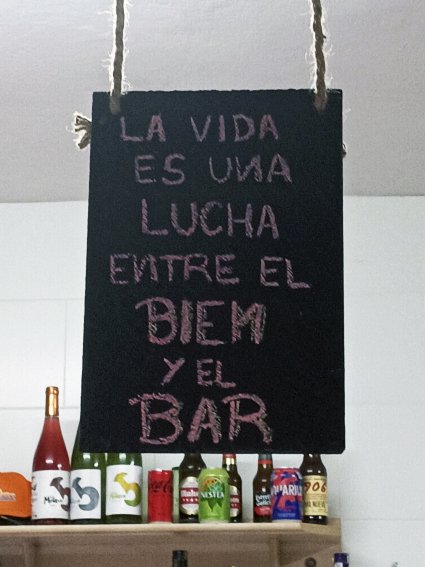 LA VIDA
ES UNA
LUCHA
ENTRE EL
BIEM
Y EL
BAR
NESTEA
906